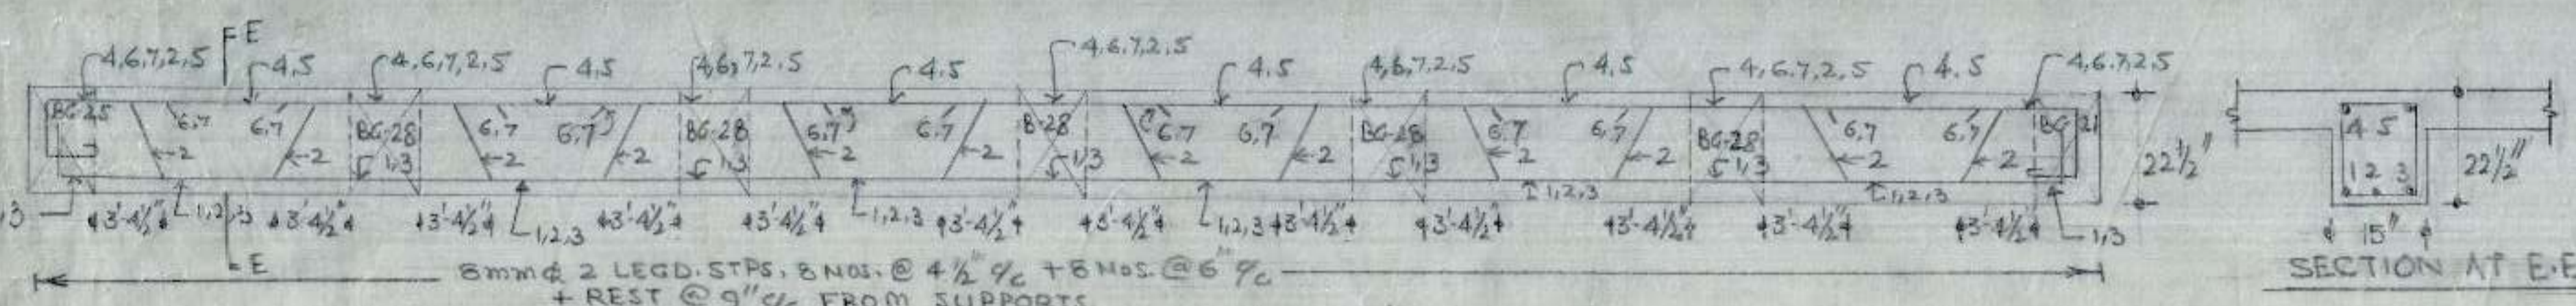 4,6,7,2,5 E 4,5 4,6,7,2,5 4,5 4,6,7,2,5 4,5 4,6,7,2,5 4,5 4,6,7,2,5 4,5 4,6,7,2,5 4,5 4,6,7,2,5
BG-25 6,7 6,7 BG-28 6,7 6,7 BG-28 6,7 6,7 B-28 6,7 6,7 BG-28 6,7 6,7 BG-28 6,7 6,7 4 5
2 2 1,3 2 2 1,3 2 2 1,3 2 2 1,3 2 2 1,3 2 2 22½" 1 2 3 22½"
3 3'-4½" 1,2,3 3'-4½" 3'-4½" 1,2,3 3'-4½" 3'-4½" 1,2,3 3'-4½" 3'-4½" 1,2,3 3'-4½" 3'-4½" 1,2,3 3'-4½" 3'-4½" 1,2,3 3'-4½" 1,3 15"
E 8mmφ 2 LEGD. STPS, 8 NOS. @ 4½" c/c + 8 NOS. @ 6" c/c SECTION AT E.E
+ REST @ 9" c/c FROM SUPPORTS